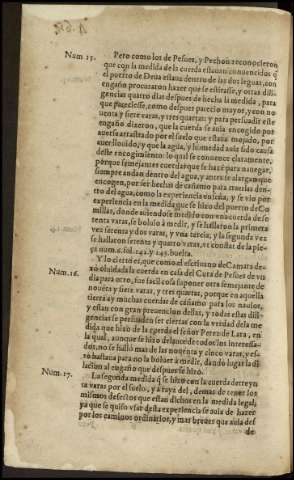 Num 15. Pero como los de Pesues, y Pechon reconocieron
que con la medida de la cuerda estauan conuencidos q̃
el puerto de Deua estaua dentro de las dos leguas, con
engaño procuraron hazer que se estirasse, y otras dili-
gencias quatro dias despues de hecha la medida, para
que pareciesse, como despues parecio mayor, y con no-
uenta y siete varas, y tres quartas: y para persuadir este
engaño dixeron, que la cuerda se auia encogido por
auerse arrastrado por el suelo que estaua mojado, por
auer llouido, y que la agua, y humedad auia sido causa
deste encogimiento: lo qual se conuence claramente,
porque semejantes cuerdas que se hazē para nauegar,
siempre andan dentro del agua, y antes se alargan que
encogen, por ser hechas de cañamo para traerlas den-
tro del agua, como la experiencia enseña, y se vio por
experiencia en la medida que se hizo del puerto de Co-
millas, donde auiendose medido con vna cuerda de se-
tenta varas, se boluio à medir, y se hallaron la primera
vez setenta y dos varas, y vna tercia; y la segunda vez
se hallaron setenta y quatro varas, et constat de la pie-
ça num. 6. fol. 142. y 145. buelta.
Num. 16. Y lo cierto es, que como el escriuano de Camara de-
xò oluidada la cuerda en casa del Cura de Pesues de vn
dia para otro, fue facil cosa suponer otra semejante de
nouēta y siete varas, y tres quartas, porque en aquella
tierra ay muchas cuerdas de cañamo para los nauios,
y estan con gran preuencion dellas, y todas estas dili-
gencias se persuaden ser ciertas con la verdad de la me-
dida que hizo de la cuerda el señor Perez de Lara, en
la qual, aunque se hizo delante de todos los interessa-
dos, no se hallò mas de las nouenta y cinco varas, y es-
to bastaua para no la boluer à medir, dando lugar la di-
lacion al engaño que despues se hizo.
Num. 17. La segunda medida q̃ se hizo con la cuerda de treyn-
ta varas por el suelo, y a raya del, demas de tener los
mismos defectos que estan dichos en la medida legal;
ya que se quiso vsar desta experiencia se auia de hazer
por los caminos ordinarios, y mas breues que auia des
de